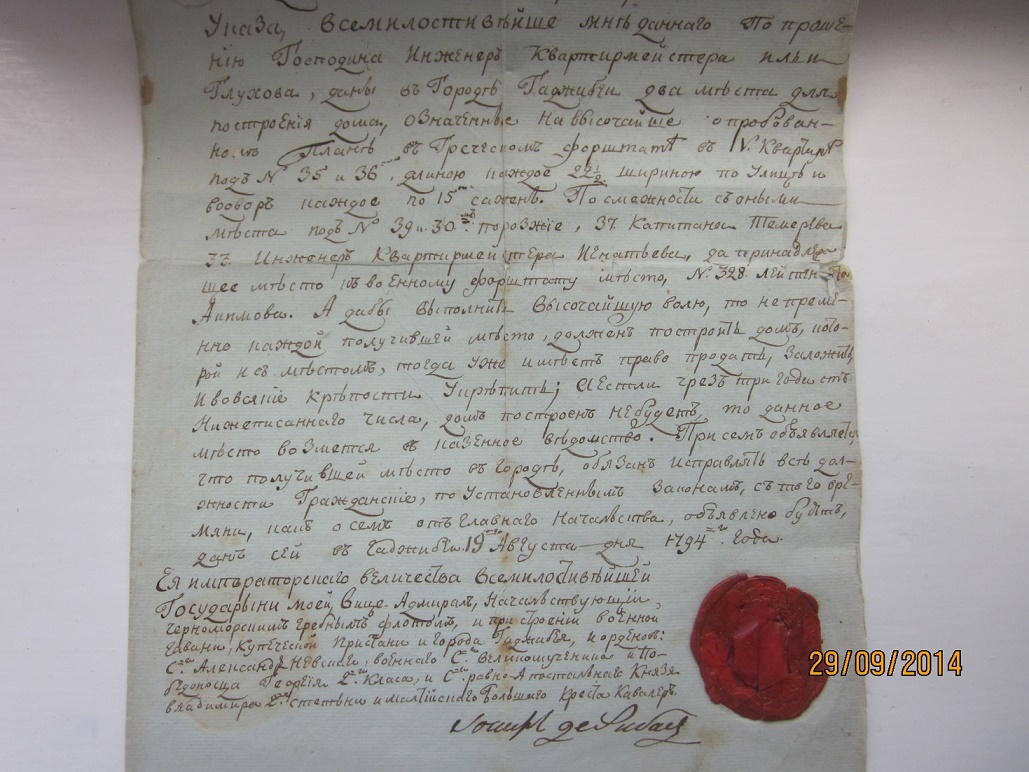 Указа, Всемилостивѣйше мнѣ даннаго По проше-
нію Господина Инженеръ Квартирмейстера Ильи
Глухова, даны въ Городѣ Гаджибеи два мѣста для
построенія дома, означенные на высочайше опробован-
номъ Планѣ въ Греческомъ форштатѣ въ IV. Квартирѣ
подъ №. 35 и 36, длиною каждое 22½ шириною по Улицѣ и
вооборъ каждое по 15 саженъ. По смежности съ оными
мѣста подъ № 39 и 30 порозжіе, 37. Капитана
37. Инженеръ Квартирмейстера Игнатьева, да принадлежа
щее мѣсто къ военному форштату мѣсто, №. 328.
Акимова. А дабы выполнить Высочайшую волю, то непреме-
нно каждой получившей мѣсто, долженъ построить домъ, кото-
рой и съ мѣстомъ, тогда уже имѣетъ право продать, Заложить
и всякіе крѣпости Укрѣпить; Аестли чрезъ три года отъ
Нижеписаннаго числа, домъ построенъ небудетъ, то данное
мѣсто возмется въ казенное вѣдомство. При семъ объявляется,
что получившей мѣсто въ городѣ, обязанъ исправлять всѣ дол-
жности Гражданскіе, по Установленнымъ Законамъ, съ того вре-
мяни, какъ о семъ отъ Главнаго Начальства, объявлено будетъ,
данъ сей въ Гаджибеи 19 Августа дня 1794. Года.
Ея императорскаго величества Всемилостивѣйшей
Государыни моей, Вице-Адмиралъ, Начальствующій
черноморскимъ Гребнымъ флотомъ, и при строеніи военной
Гавани, купѣческой Пристани и города Гаджибея, и орденовъ:
Св. Александра Невскаго, военнаго Св. Великомученика и По-
бѣдоносца Георгія 2. Класа, и Св. равно Апостальнаго Князя
Владимира 2. степени и малтійскаго Большаго Креста Кавалеръ.
Іосифъ де Рибасъ
29/09/2014